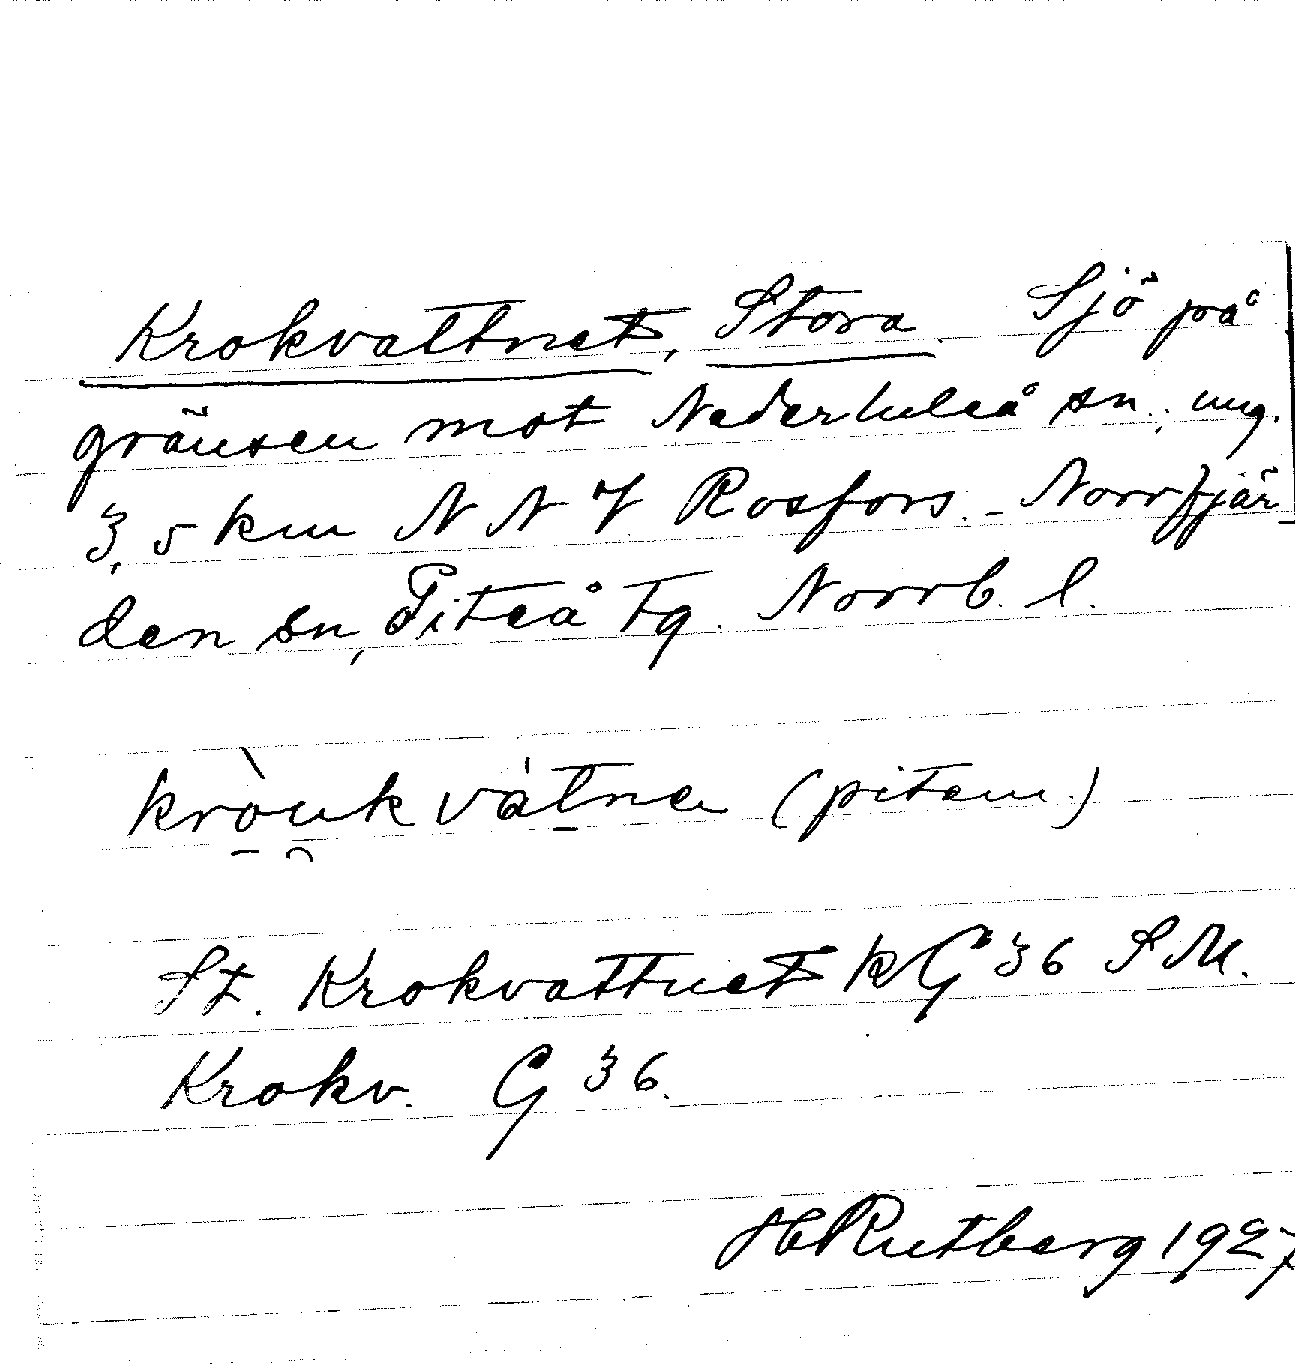 Krokvattnet, Stora. Sjö på
gränsen mot Nederluleå sn, ung.
3,5 km NNV Rosfors. - Norrfjär-
den sn, Piteå tg. Norrb. l.
kròuk vátne (pitem.)
St. Krokvattnet kG 36 SM.
Krokv. G 36.
H Rutberg 1927